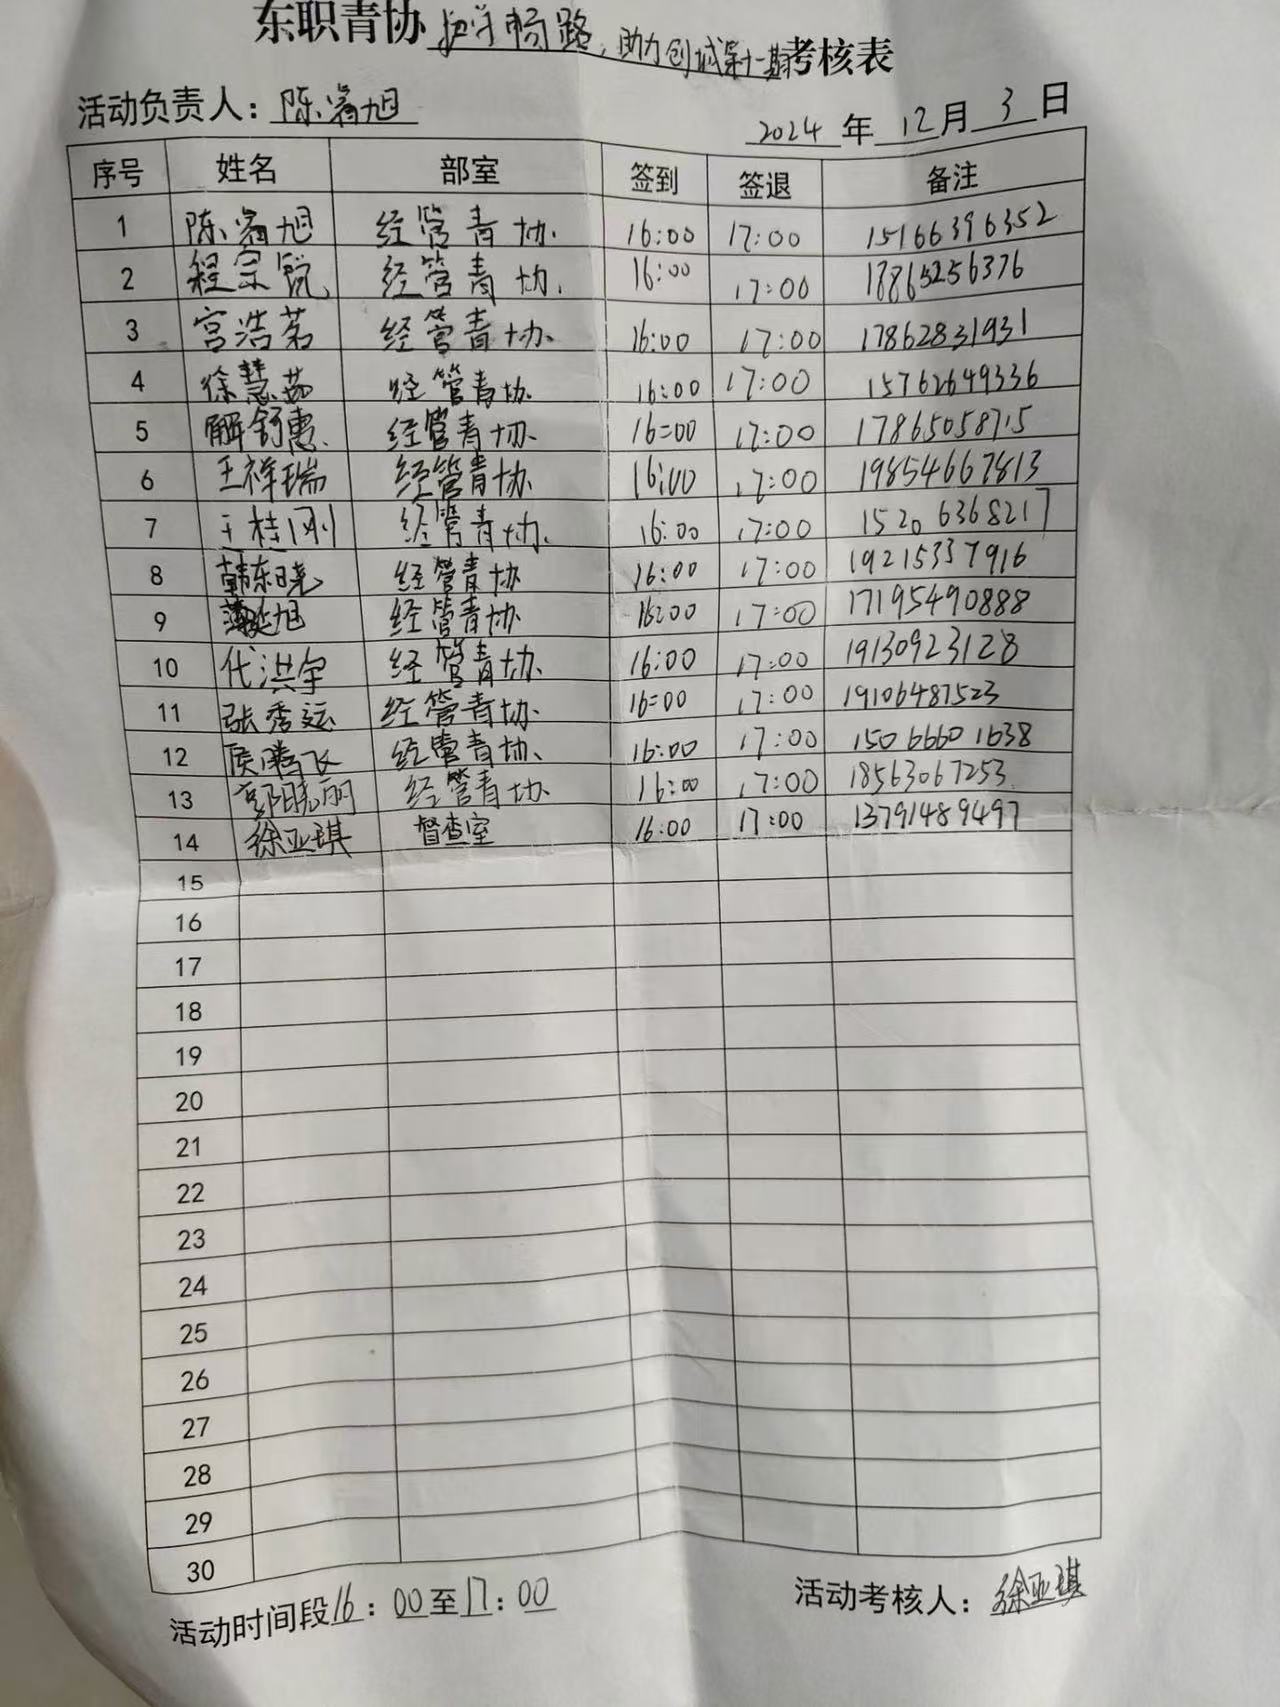 东职青协护学畅路，助力创城第十一期考核表
活动负责人：陈睿旭
2024 年 12 月 3 日
序号 姓名 部室 签到 签退 备注
1 陈睿旭 经管青协 16:00 17:00 15166396352
2 程宗锐 经管青协 16:00 17:00 17865256376
3 宫浩茗 经管青协 16:00 17:00 17862831931
4 徐慧茹 经管青协 16:00 17:00 15762649336
5 解舒惠 经管青协 16:00 17:00 17865058715
6 王祥瑞 经管青协 16:00 17:00 19854667813
7 王桂刚 经管青协 16:00 17:00 15206368217
8 韩东晓 经管青协 16:00 17:00 19215337916
9 旭 经管青协 16:00 17:00 17195490888
10 代洪宇 经管青协 16:00 17:00 19130923128
11 张秀运 经管青协 16:00 17:00 19106487523
12 侯腾飞 经管青协 16:00 17:00 15066601638
13 郭晓丽 经管青协 16:00 17:00 18563067253
14 徐亚琪 督查室 16:00 17:00 13791489497
15
16
17
18
19
20
21
22
23
24
25
26
27
28
29
30
活动时间段16：00至17：00
活动考核人：徐亚琪